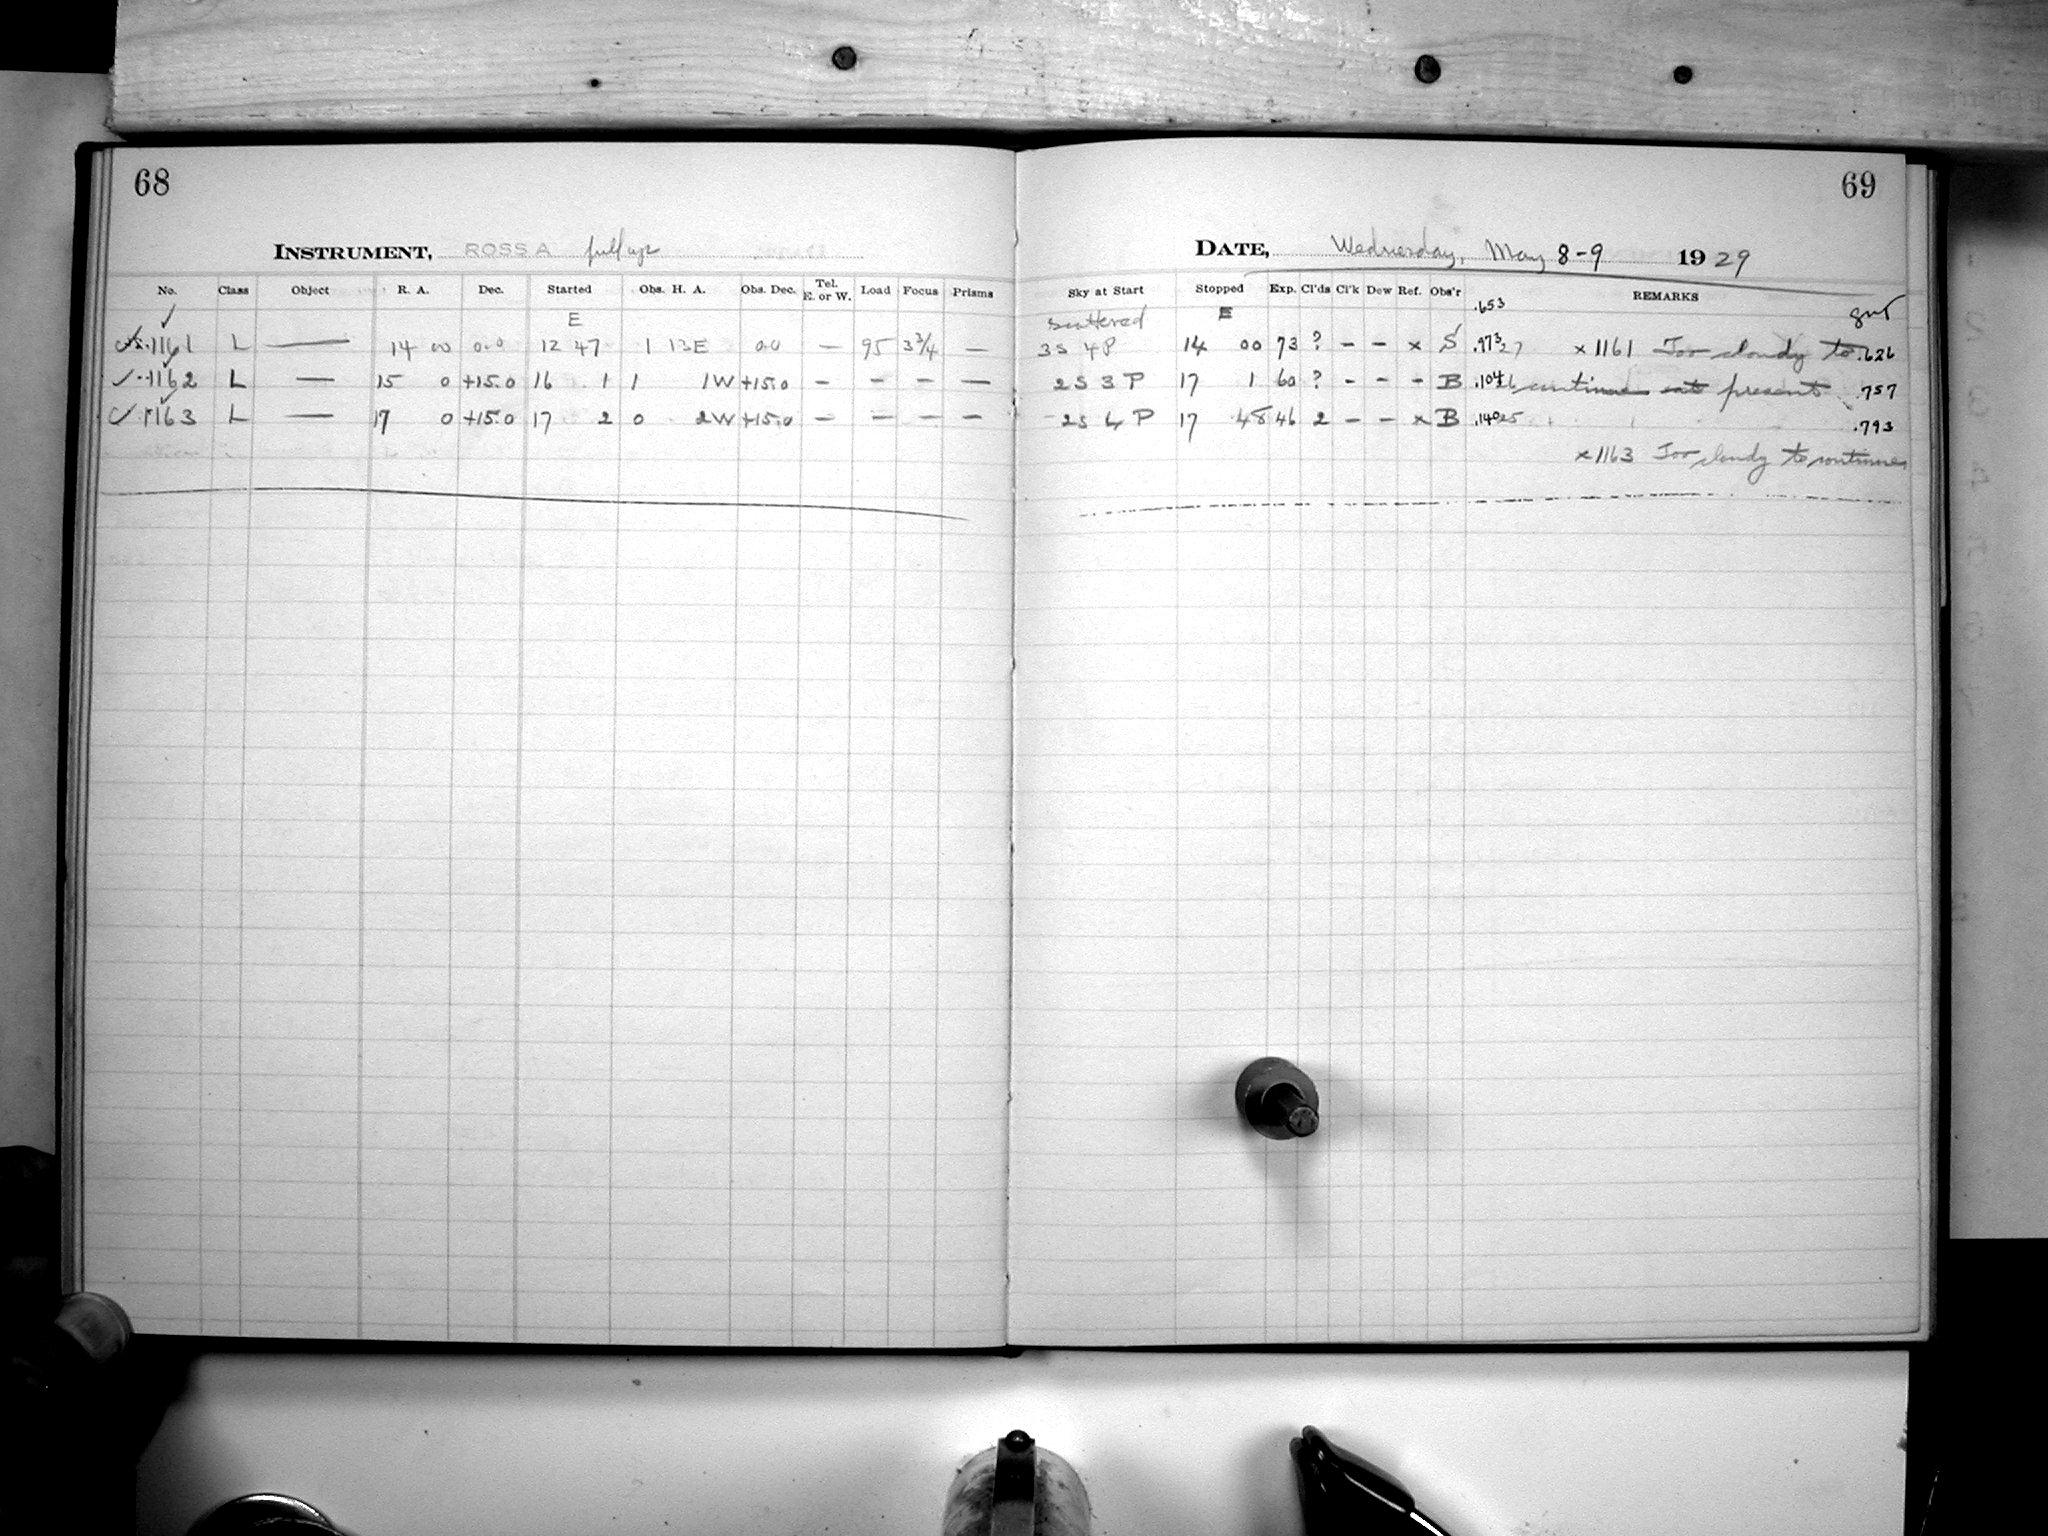 68
INSTRUMENT, ROSS A full ap
No. Class Object R. A. Dec. Started Obs. H. A. Obs. Dec. Tel. E. or W. Load Focus Prisms
E
1161 L — 14 00 0.0 12 47 1 13E 0.0 — 95 3 3/4 —
1162 L — 15 0 +15.0 16 1 1 1W +15.0 — — — —
1163 L — 17 0 +15.0 17 2 0 2W +15.0 — — — —
69
DATE, Wednesday, May 8-9 1929
Sky at Start Stopped Exp. Cl'ds Cl'k Dew Ref. Obs'r REMARKS
scattered E .653 GMT
3S 4P 14 00 73 ? - - x S .973 27 x1161 Too cloudy to .626
2S 3P 17 1 60 ? - - - B .104 continue at present .757
2S 4P 17 48 46 2 - - x B .140 25 .793
x1163 Too cloudy to continue